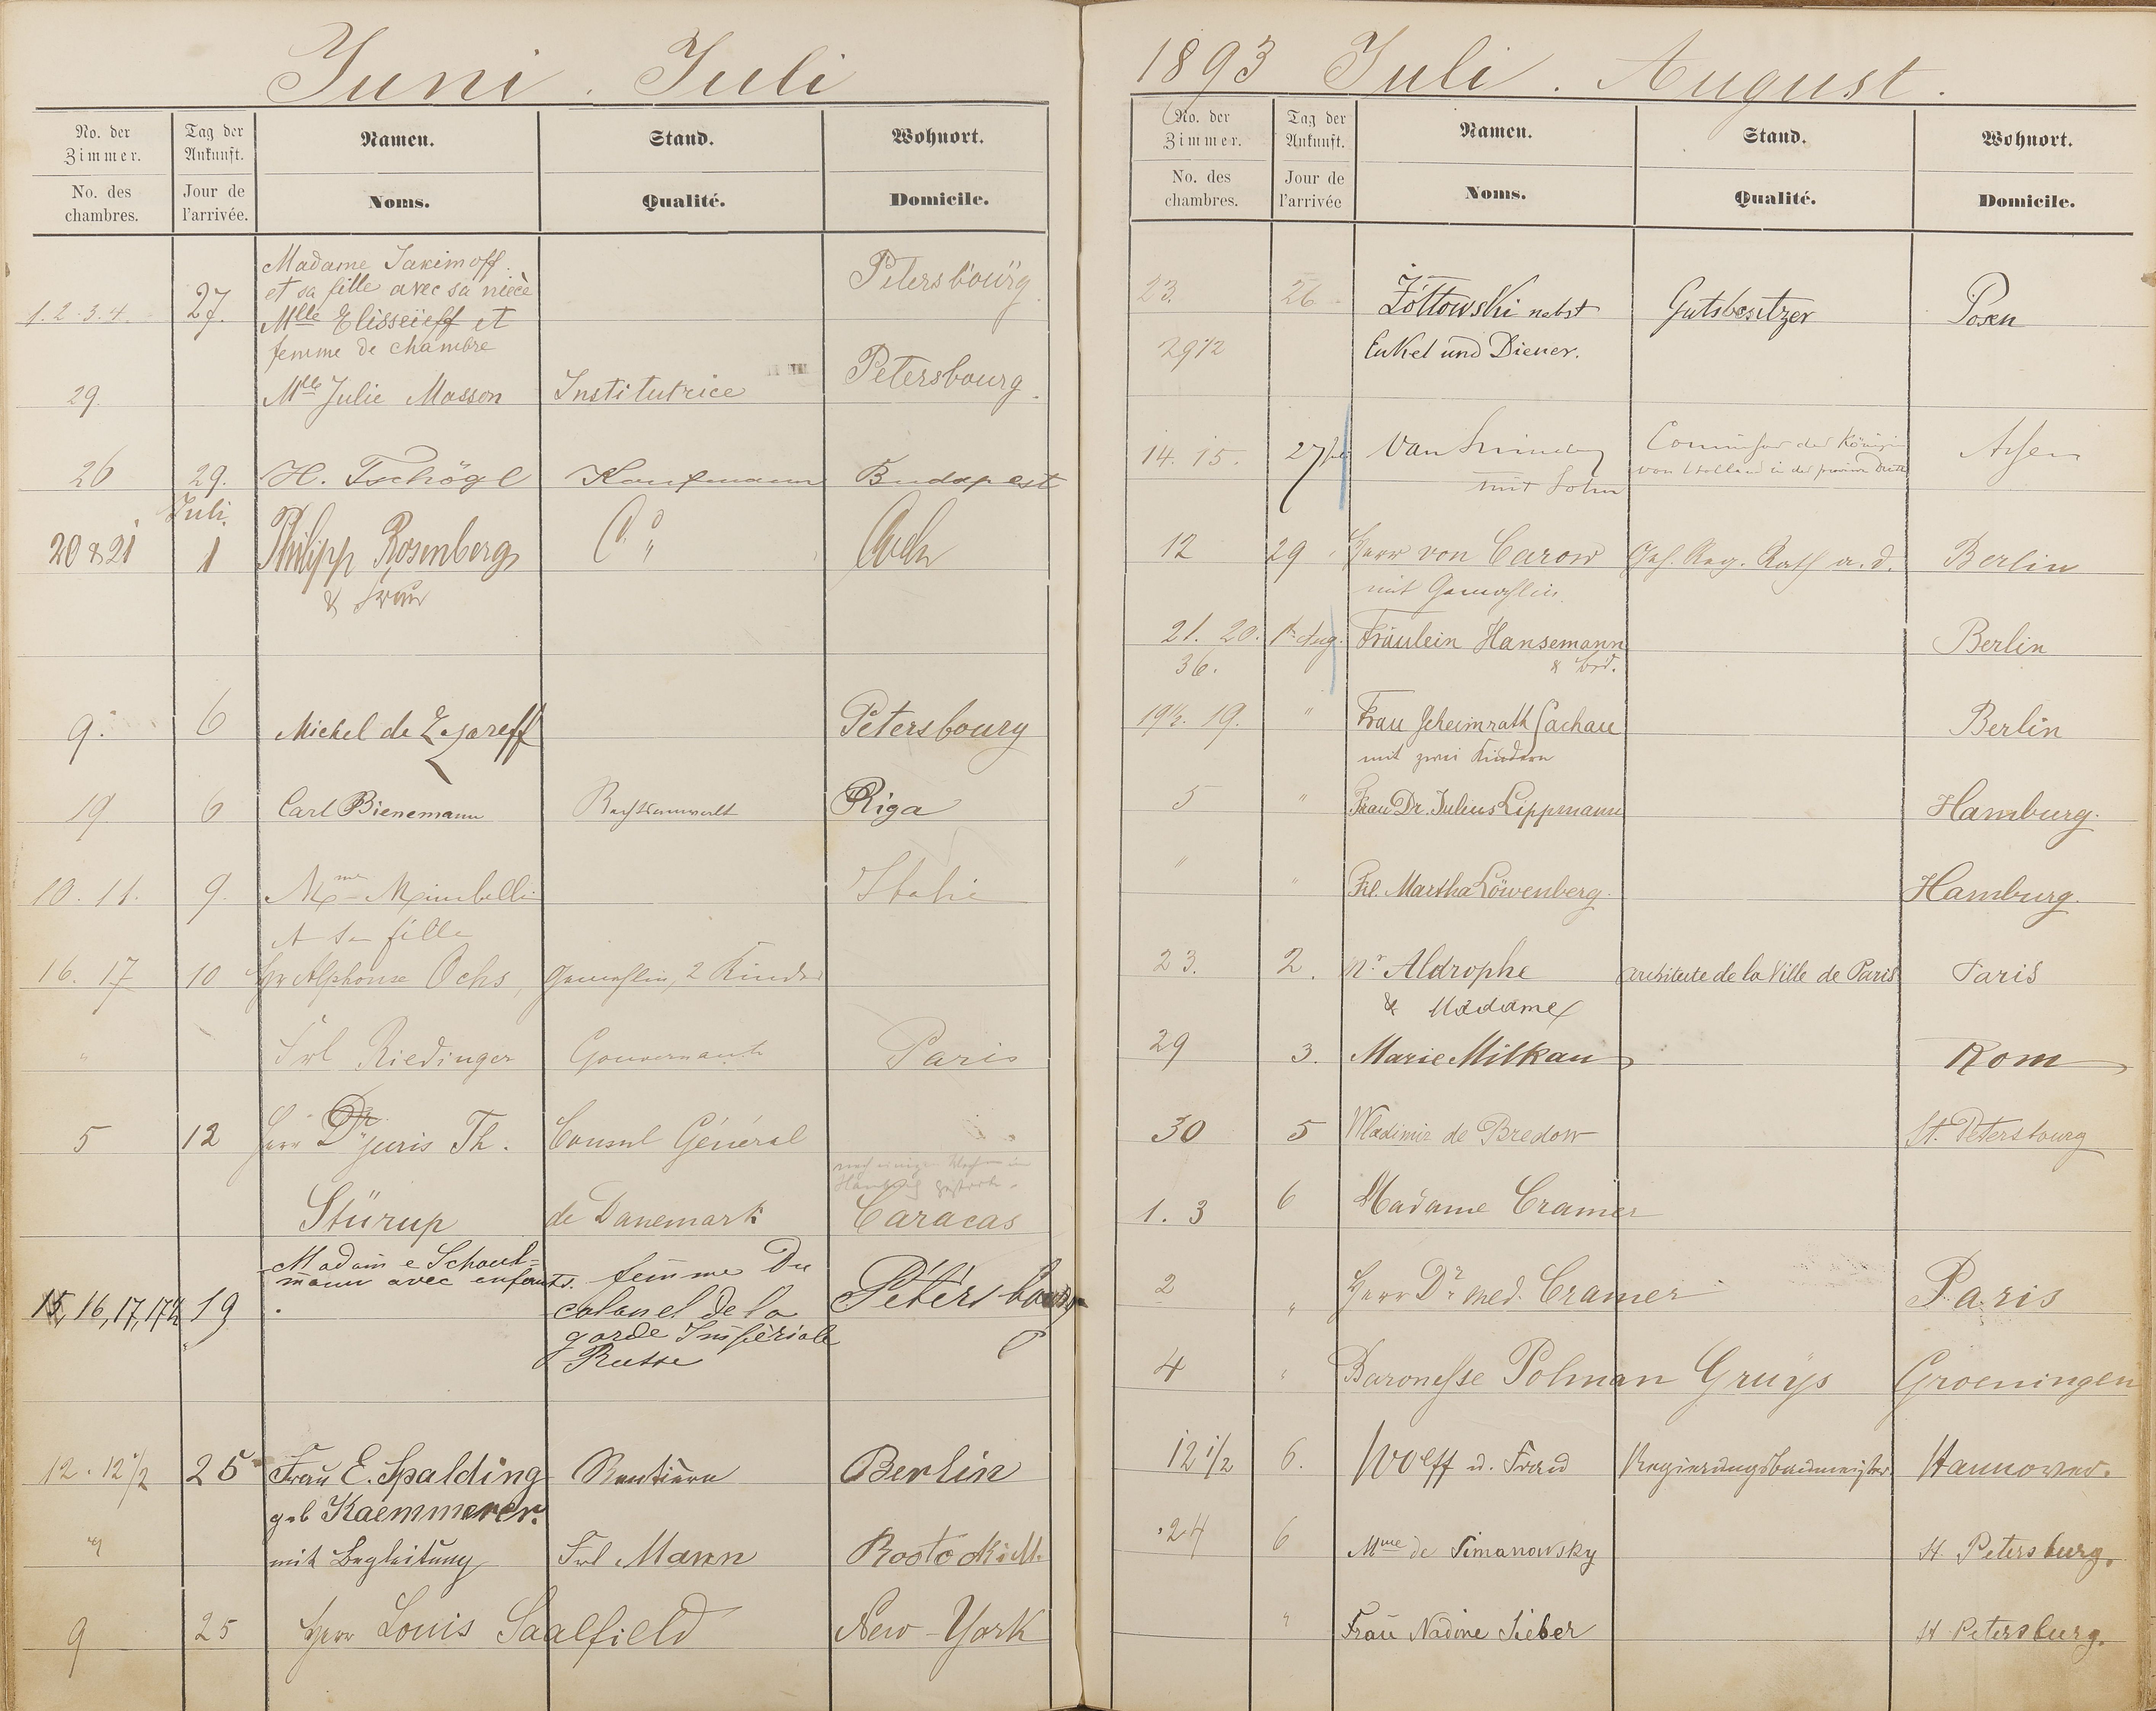 Juni . Juli
No. der Zimmer. Tag der Ankunft. Namen. Stand. Wohnort.
No. des chambres. Jour de l'arrivée. Noms. Qualité. Domicile.
Madame Jakimoff
et sa fille avec sa nièce Petersbourg
1.2.3.4. 27. Mlle Elisseieff et
femme de chambre
29. Mlle Julie Masson Institutrice Petersbourg.
26 29. H. Tschögl Kaufmann Budapest
Juli
20 & 21 1 Philipp Rosenberg do "
& Frau
9. 6 Michel de Petersbourg
19 6 Carl Bienemann Rechtsanwalt Riga
10. 11. 9. Mme Mimbelli Italie
et sa fille
16. 17 10 Hr Alphonse Ochs, Gemahlin, 2 Kinder
" Frl Riedinger Gouvernante Paris
5 12 Herr Dr juris Th. Consul Général
nach einigen Wochen in
gestorben.
Stürup de Danemark Caracas
Madame Schaub=
mann avec enfants. femme Du
15, 16, 17, 17½ 19 colonel de la Pétersbourg
garde Impériale
Russe
12. 12 1/2 25 Frau E. Spalding Rentière Berlin
geb Kaemmerer.
" mit Begleitung Frl Mann Rostock i M.
9 25 Herr Louis Saalfield New-York
1893 Juli . August.
No. der Zimmer. Tag der Ankunft. Namen. Stand. Wohnort.
No. des chambres. Jour de l'arrivée Noms. Qualité. Domicile.
23. 26 Żółtowski nebst Gutsbesitzer Posen
29½ Enkel und Diener.
14. 15. 27 van
mit Sohn von Holland in der provinz
12 29 Herr von Carow Geh. Reg. Rath a. d. Berlin
mit Gemahlin
21. 20. 1. Aug. Fräulein Hansemann Berlin
36. & Bed.
19½. 19. " Frau Geheimrath Cachau Berlin
mit zwei Kindern
5 " Frau Dr. Julius Lippmann Hamburg.
" " Frl. Martha Löwenberg. Hamburg.
23. 2. Mr Aldrophe architecte de la Ville de Paris Paris
& Madame
29 3. Marie Milkau Rom
30 5 Wladimir de Bredow St. Petersbourg
1. 3 6 Madame Cramer
2 " Herr Dr med. Cramer Paris
4 " Baronesse Polman Gruys Groeningen
12 1/2 6. Wolff u. Frau Regierungsbaumeister Hannover.
24 6 Mme de Simanowsky St Petersburg.
" Frau Nadine Sieber St Petersburg.